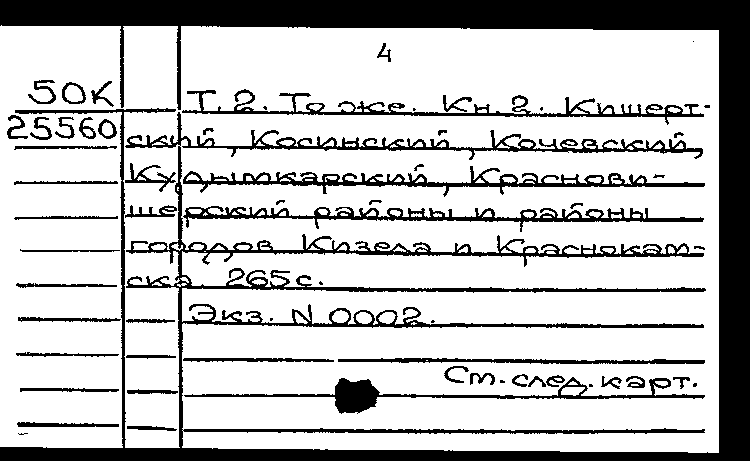 4
50К Т. 2. То же. Кн. 2. Кишерт-
25560 ский, Косинский, Кочевский,
Кудымкарский, Краснови-
шерский районы и районы
городов Кизела и Краснокам-
ска. 265 с.
Экз. N 0002.
См. след. карт.